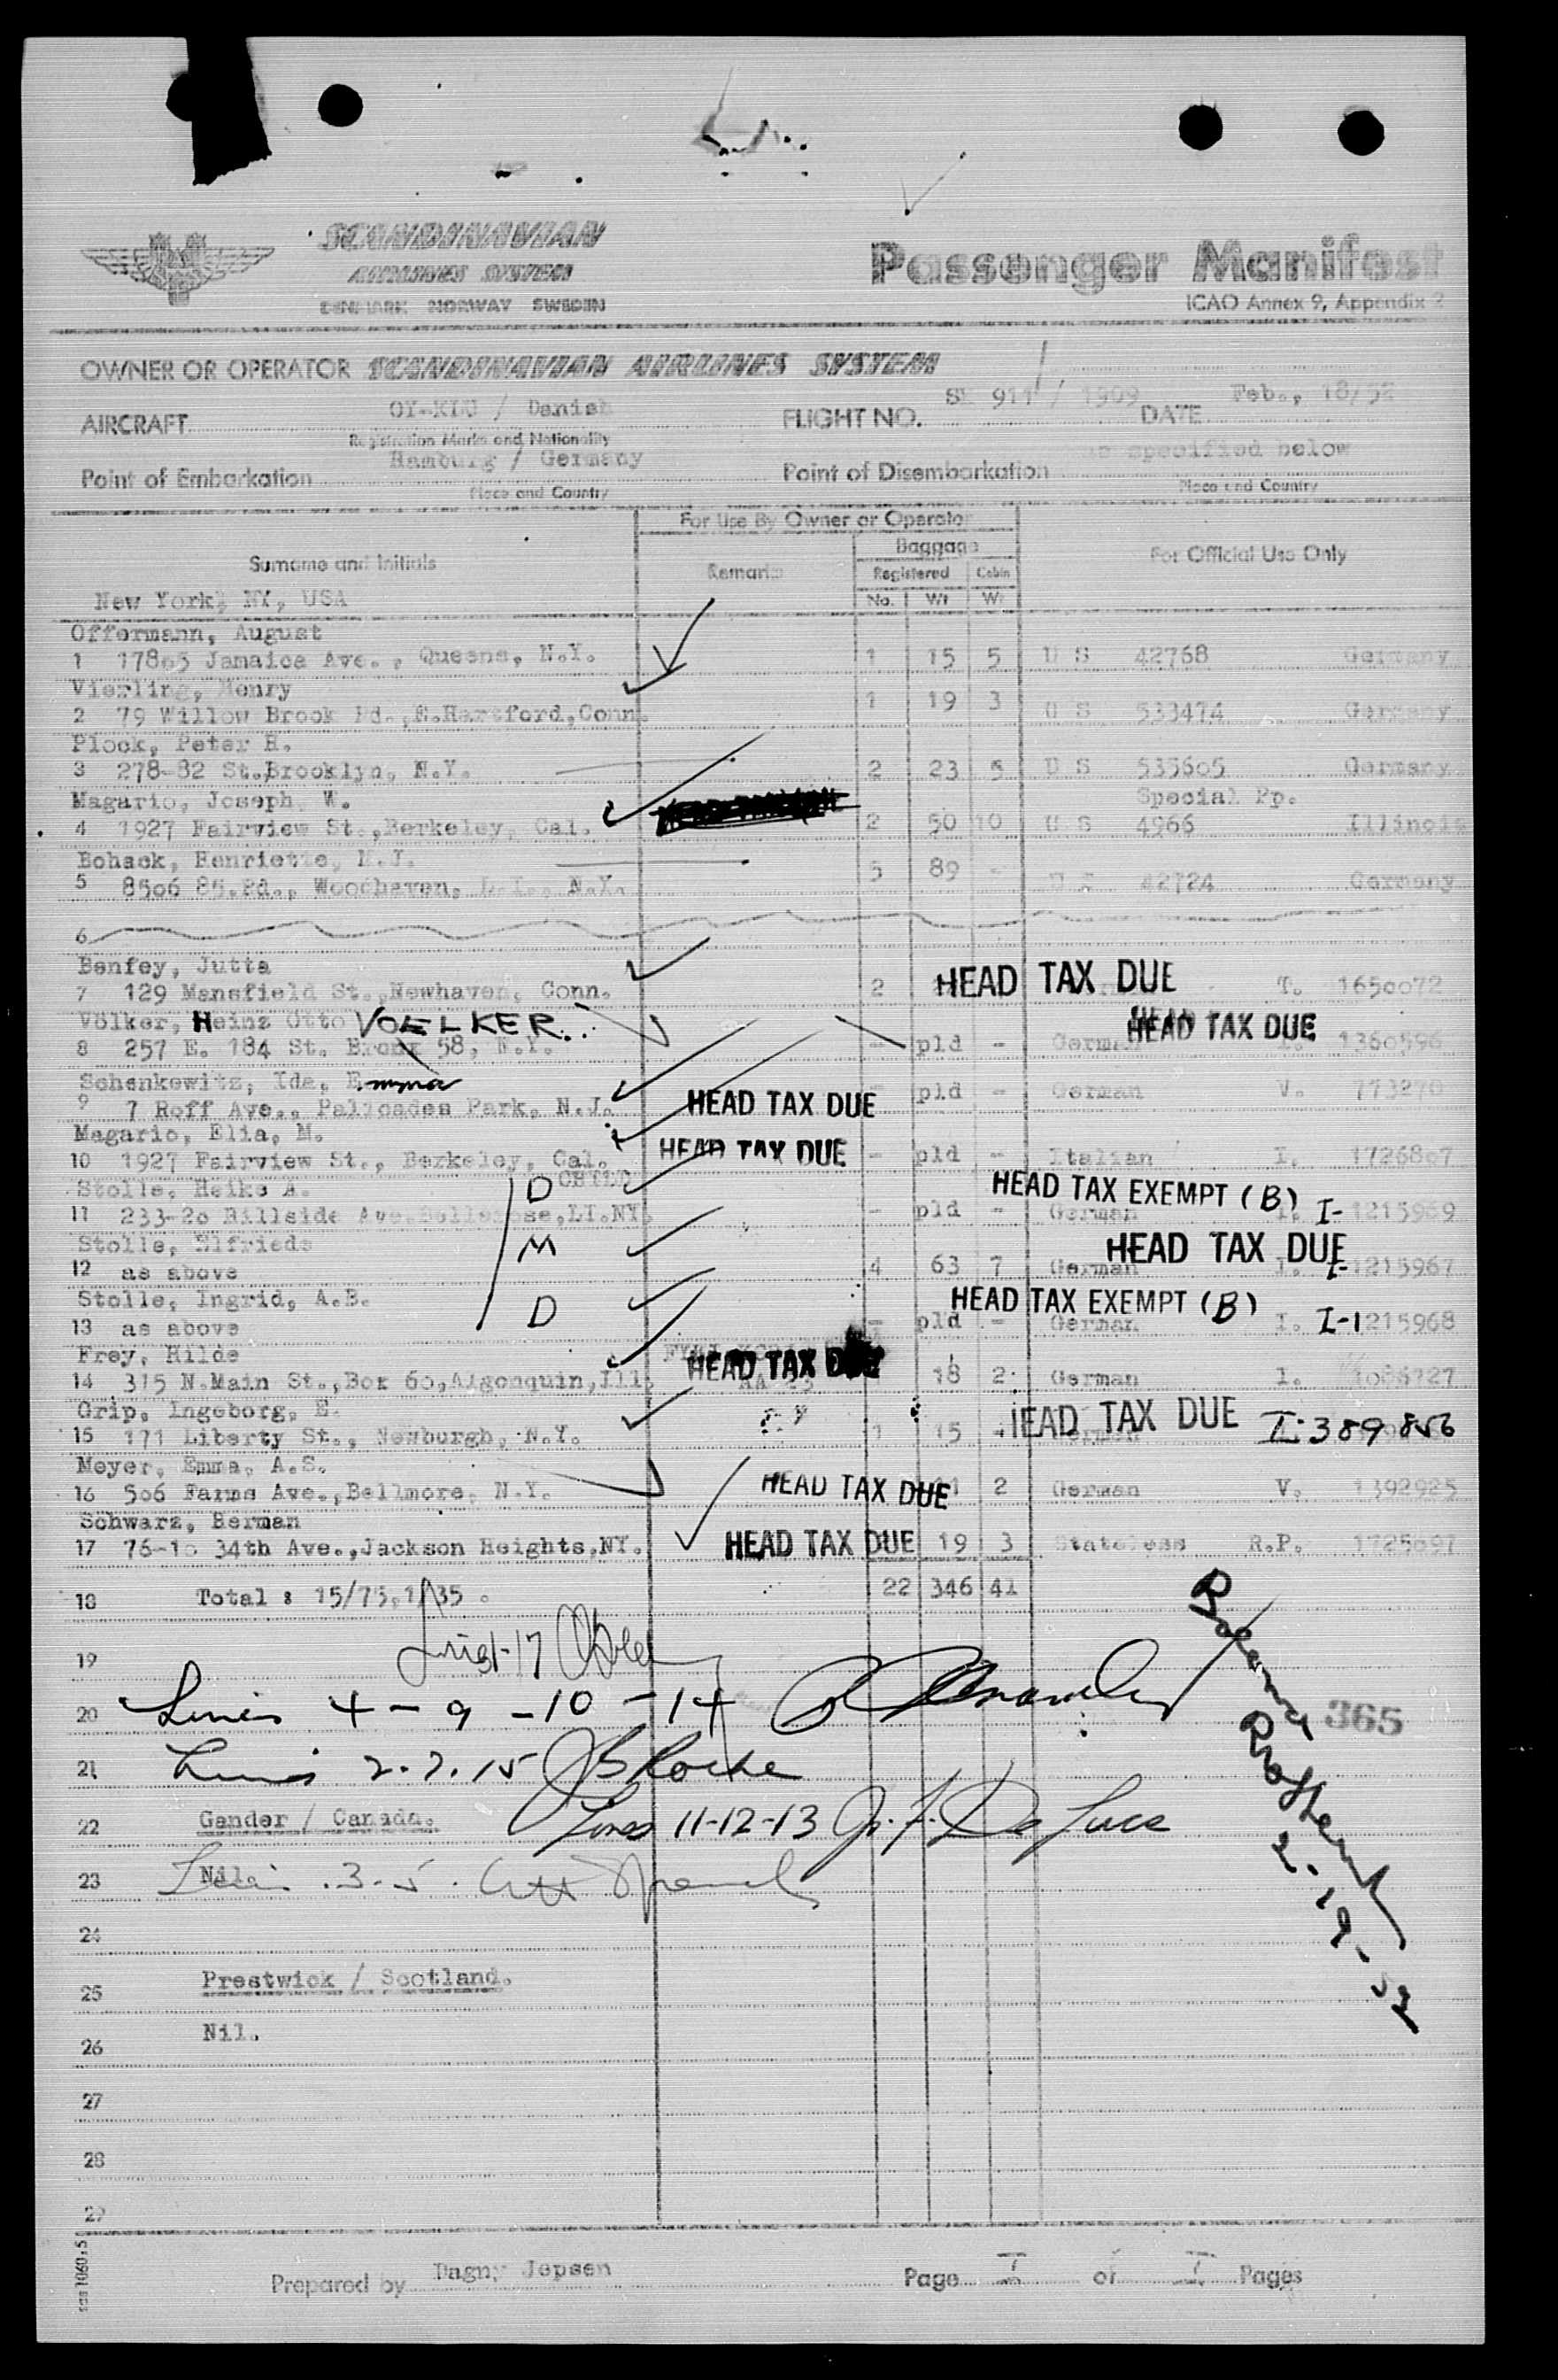 SCANDINAVIAN
AIRLINES SYSTEM
DENMARK NORWAY SWEDEN
Passenger Manifest
ICAO Annex 9, Appendix 2
OWNER OR OPERATOR SCANDINAVIAN AIRLINES SYSTEM
AIRCRAFT / Danish FLIGHT NO. SK 911 / 1909 DATE Feb., 18/52
Registration Marks and Nationality
Point of Embarkation Hamburg / Germany Point of Disembarkation as specified below
Place and Country Place and Country
For Use By Owner or Operator
Surname and Initials Remarks Baggage For Official Use Only
Registered Cabin
New York, NY, USA No. Wt Wt
Offermann, August
1 17865 Jamaica Ave., Queens, N.Y. 1 15 5 U S 42768 Germany
Vierling, Henry
2 79 Willow Brook Rd., E.Hartford,Conn. 1 19 3 U S 533474 Germany
Plock, Peter H.
3 278-82 St.,Brooklyn, N.Y. 2 23 5 U S 535605 Germany
Magario, Joseph W. Special Pp.
4 1927 Fairview St.,Berkeley, Cal. 2 50 10 U S 4966 Illinois
Bohack, Henriette, M.J.
5 8506 85.Rd., Woodhaven, L.I., N.Y. 5 89 - U S 42724 Germany
6
Benfey, Jutta
7 129 Mansfield St.,Newhaven, Conn. 2 HEAD TAX DUE I. 1650072
Völker, Heinz Otto VOELKER HEAD TAX DUE
8 257 E. 184 St. Bronx 58, N.Y. - pld - German 1360596
Schenkewitz, Ida, Emma
9 7 Roff Ave., Palisades Park, N.J. HEAD TAX DUE - pld - German V. 773270
Magario, Elia, M.
10 1927 Fairview St., Berkeley, Cal. HEAD TAX DUE - pld - Italian I. 1726807
Stolle, Heike A. D CHILD HEAD TAX EXEMPT (B)
11 233-20 Hillside Ave.Bellerose,LI.NY. - pld - German I- 1215969
Stolle, Elfriede M HEAD TAX DUE
12 as above 4 63 7 German I- 1215967
Stolle, Ingrid, A.B. D HEAD TAX EXEMPT (B)
13 as above - pld - German I. I-1215968
Frey, Hilde
14 315 N.Main St.,Box 60,Algonquin,Ill. HEAD TAX DUE 18 2 German I.
Grip, Ingeborg, E. HEAD TAX DUE I-389856
15 171 Liberty St., Newburgh, N.Y. 1 15
Meyer, Emma, A.S.
16 506 Farms Ave.,Bellmore, N.Y. HEAD TAX DUE 2 German V. 1392925
Schwarz, Herman
17 76-10 34th Ave.,Jackson Heights,NY. HEAD TAX DUE 19 3 Stateless R.P. 1725097
18 Total : 15/75,1/35 . 22 346 41
19
20 Lines 4 - 9 - 10 - 14 365
21 Lines 2.7.15 JB Roche
22 Gander / Canada. Lines 11-12-13 De Luca
23 Nil. 3-5
2-19-52
24
25 Prestwick / Scotland.
26 Nil.
27
28
29
sas 1060:5
Prepared by Dagny Jepsen Page I of I Pages